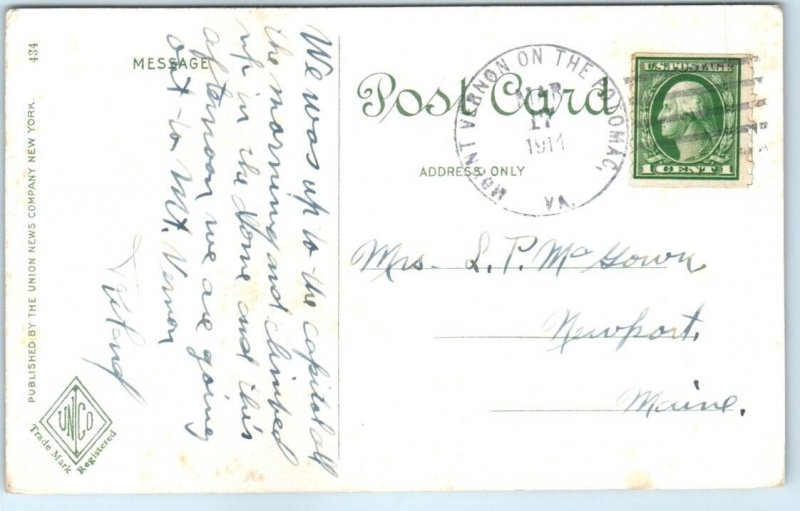 434
MESSAGE
Post Card
ADDRESS ONLY
PUBLISHED BY THE UNION NEWS COMPANY NEW YORK.
UNCO
Trade Mark
Registered
MOUNT VERNON ON THE POTOMAC,
MAR
17
1914
VA.
U.S. POSTAGE
1 CENT 1
We was up to the capitol all
the morning and climbed
up in the dome and this
afternoon we are going
out to Mt. Vernon
Mrs. L. P. McGown
Newport,
Maine.